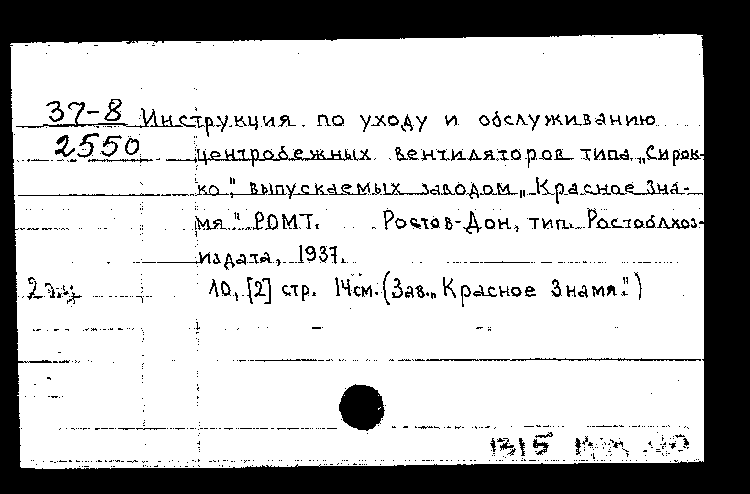 37-8 Инструкция по уходу и обслуживанию
2550 центробежных вентиляторов типа „Сирок-
ко", выпускаемых заводом „Красное Зна-
мя" РОМТ. Ростов-Дон, тип. Ростоблхоз-
издата, 1937.
2 экз 10, [2] стр. 14см. (Зав. „Красное Знамя")
1315